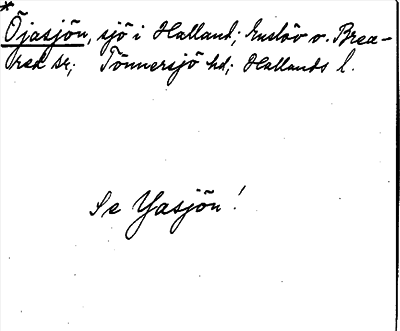 * Öjasjön, sjö i Halland; Enslöv o. Brea-
red sr; Tönnersjö hd; Hallands l.
Se Yasjön!